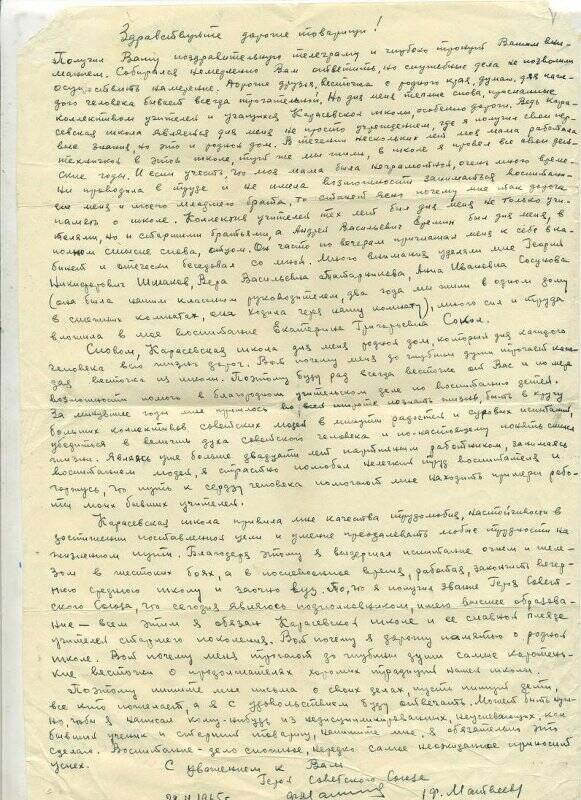 Здравствуйте дорогие товарищи!
Получил Вашу поздравительную телеграму и глубоко тронут Вашим вни-
манием. Собирался немедленно Вам ответить, но служебные дела не позволили
осуществить намерение. Дорогие друзья, весточка с родного края, думаю, для каж-
дого человека бывает всегда трогательной. Но для меня теплые слова, присланные
коллективом учителей и учащихся Карасевской школы, особенно дороги. Ведь Кара-
севская школа является для меня не просто учреждением, где я получил свои пер-
вые знания, но это и родной дом. В течении нескольких лет моя мама работала
техничкой в этой школе, тут же мы жили, в школе я провел все свои дет-
ские годы. И если учесть, что моя мама была неграмотной, очень много време-
ни проводила в труде и не имела возможности заниматься воспитани-
ем меня и моего младшего брата, то станет ясно почему мне так дорога
память о школе. Коллектив учителей тех лет был для меня не только учи-
телями, но и старшими братьями, а Андрей Васильевич Еремин был для меня, в
полном смысле слова, отцом. Он часто по вечерам приглашал меня к себе в ка-
бинет и отечески беседовал со мной. Много внимания уделяли мне Георгий
Никандорович Шпаков, Вера Васильевна Татаринова, Анна Ивановна Сосунова
(она была нашим классным руководителем, два года мы жили в одном дому
в смежных комнатах, она ходила через нашу комнату), много сил и труда
вложила в мое воспитание Екатерина Григорьевна Сокол.
Словом, Карасевская школа для меня родной дом, который для каждого
человека всю жизнь дорог. Вот почему меня до глубины души трогает каж-
дая весточка из школы. Поэтому буду рад всегда весточке от Вас и по мере
возможности помогу в благородном учительском деле по воспитанию детей.
За минувшие годы мне пришлось во всей широте познать жизнь, быть в кругу
больших коллективов советских людей в минуты радостей и суровых испытаний,
убедиться в величии духа советского человека и по-настоящему понять смысл
жизни. Являясь уже больше двадцати лет партийным работником, занимаясь
воспитанием людей, я страстно полюбил нелегкий труд воспитателя и
горжусь, что путь к сердцу человека помогают мне находить примеры рабо-
ты моих бывших учителей.
Карасевская школа привила мне качества трудолюбия, настойчивости в
достижении поставленной цели и умение преодолевать любые трудности на
жизненном пути. Благодаря этому я выдержал испытание огнем и желе-
зом в жестоких боях, а в послевоенное время, работая, закончить вечер-
нюю среднюю школу и заочно вуз. То, что я получил звание Героя Совет-
ского Союза, что сегодня являюсь подполковником, имею высшее образова-
ние – всем этим я обязан Карасевской школе и ее славной плеяде
учителей старшего поколения. Вот почему я дорожу памятью о родной
школе. Вот почему меня трогают до глубины души самые коротень-
кие весточки о продолжателях хороших традиций нашей школы.
Поэтому пишите мне письма о своих делах, пусть пишут дети,
все кто пожелает, а я с удовольствием буду отвечать. Может быть нуж-
но, чтобы я написал кому-нибудь из недисциплинированных, неуспевающих, как
бывший ученик и старший товарищ, напишите мне, я обязательно это
сделаю. Воспитание – дело сложное, нередко самое неожиданное приносит
успех.
С уважением к Вам
Герой Советского Союза
(Ф. Матвеев)